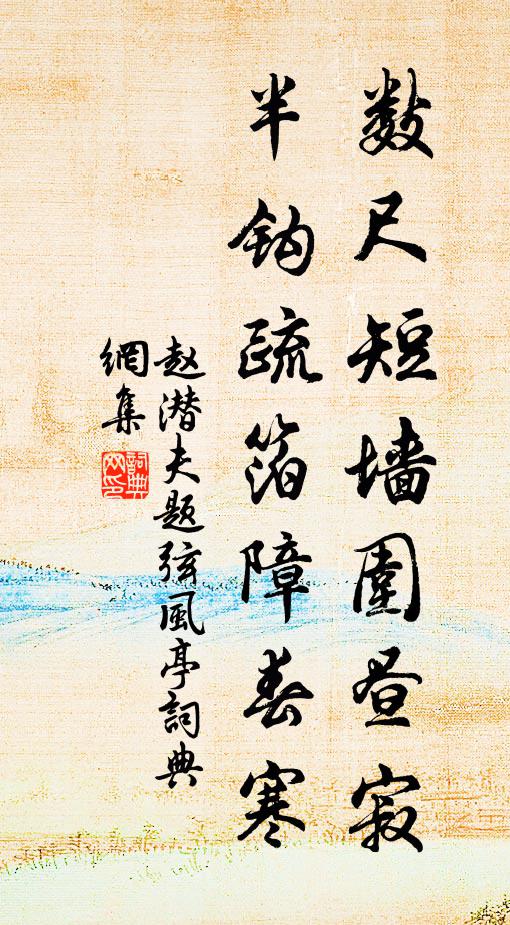 数尺短墙围昼寂
半钩疏箔障春寒
赵潜夫题弦風亭詞典
網集
詞典
网印